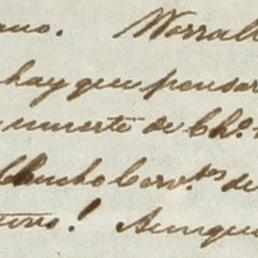 ano. Worrall
hay que pensar
muerte de Ch.º
Mucho Cerv.tes de
! Aunque